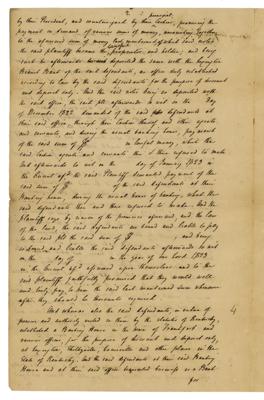 2
principal,
by their President, and countersigned by their Cashier, promising the
payment on demand of various sums of money, amounting together
to the aforesaid sum of money last mentioned of which said notes
the said plaintiff became the proprietor, and holder, and being
such he afterwards deposited the same with the Lexington
Branch Bank of the said defendants, an office duly established
according to law by the said defendants for the purpose of discount
and deposit only. And the said notes being so deposited with
the said office, the said plt. afterwards to wit on the day
of December 1822 demanded of the said defendants at
their said office, through their Cashier thereof and other agents
and servants, and during the usual banking hours, payment
of the said sum of $ in lawful money, which the
said Cashier agents and servants then & there refused to make
And afterwards to wit on the day of January 1823 in
the Circuit aforesaid the said Plaintiff demanded payment of the
said sum of $ of the said defendants at their
Banking house, during the usual hours of banking, which the
said defendants then and there refused to make. And the
plaintiff says by reason of the premises aforesaid, and the law
of the land, the said defendants are bound and liable to pay
to the said plt the said sum of $ and being
so bound, and liable the said defendants afterwards to wit
on the day of in the year of our lord 1823
in the Circuit aforesaid upon themselves and to the
said plaintiff faithfully promised that they would well
and truly pay to him the said last mentioned sum whenever
after they should be thereunto required
And whereas also the said defendants, in virtue of
powers and authority vested in them by the statutes of Kentucky,
established a Banking House in the town of Frankfort and
various offices, for the purpose of discount and deposit only,
at Lexington, Shelbyville, Louisville and other places in the
State of Kentucky. And the said defendants at their said Banking
House and at their said office
for
4